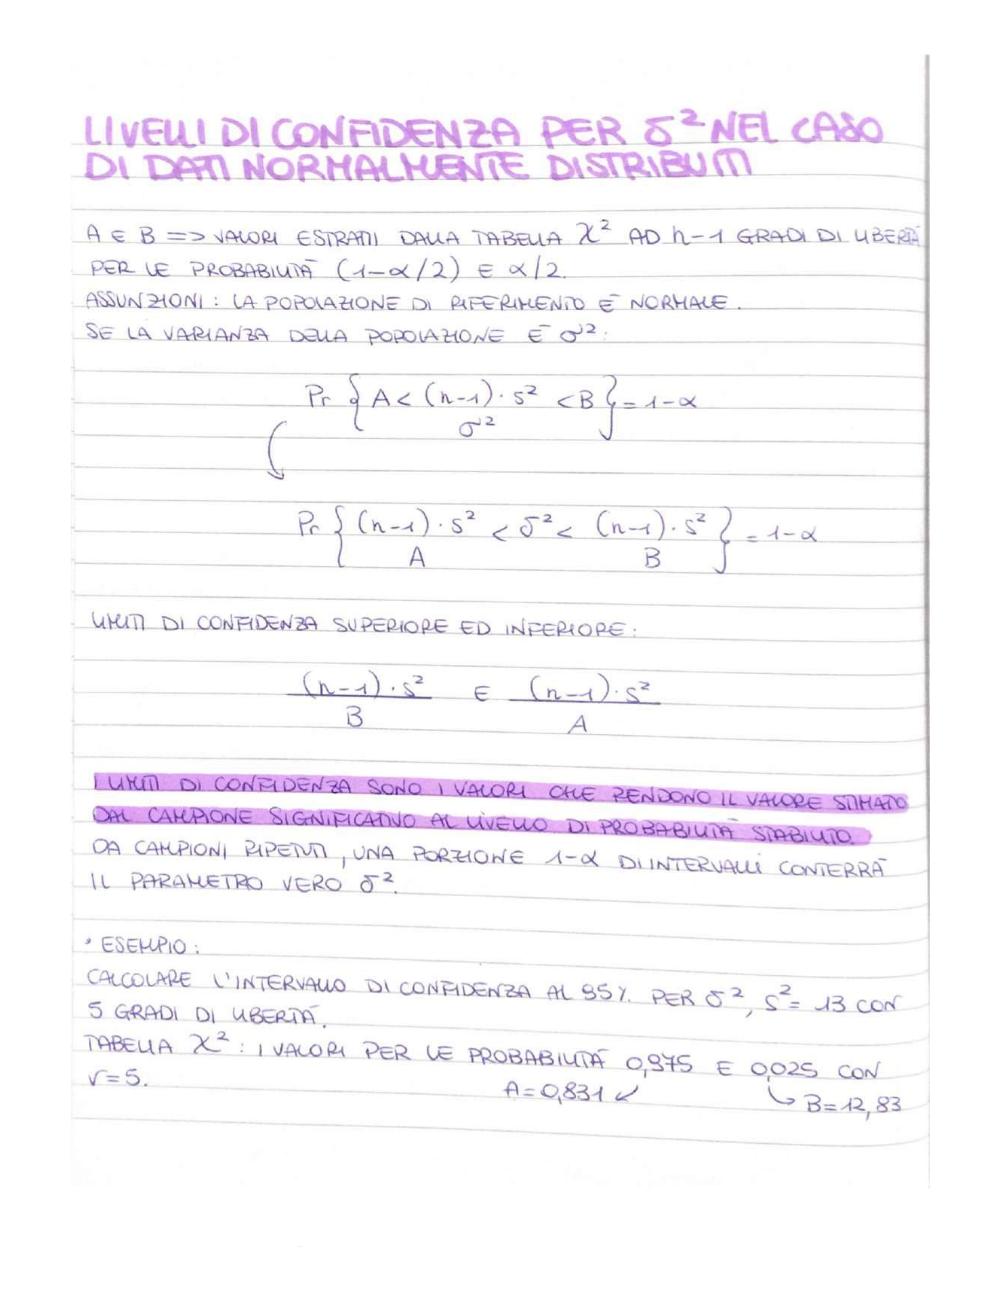 LIVELLI DI CONFIDENZA PER δ² NEL CASO
DI DATI NORMALMENTE DISTRIBUITI
A E B => VALORI ESTRATTI DALLA TABELLA χ² AD n-1 GRADI DI LIBERTÀ
PER LE PROBABILITÀ (1-α/2) E α/2.
ASSUNZIONI: LA POPOLAZIONE DI RIFERIMENTO È NORMALE.
SE LA VARIANZA DELLA POPOLAZIONE È σ²:
Pr { A < (n-1)·s² / σ² < B } = 1-α
Pr { (n-1)·s² / A < δ² < (n-1)·s² / B } = 1-α
LIMITI DI CONFIDENZA SUPERIORE ED INFERIORE:
(n-1)·s² / B E (n-1)·s² / A
I LIMITI DI CONFIDENZA SONO I VALORI CHE RENDONO IL VALORE STIMATO
DAL CAMPIONE SIGNIFICATIVO AL LIVELLO DI PROBABILITÀ STABILITO.
DA CAMPIONI RIPETUTI, UNA PORZIONE 1-α DI INTERVALLI CONTERRÀ
IL PARAMETRO VERO δ².
• ESEMPIO:
CALCOLARE L'INTERVALLO DI CONFIDENZA AL 95% PER δ², s² = 13 CON
5 GRADI DI LIBERTÀ.
TABELLA χ²: I VALORI PER LE PROBABILITÀ 0,975 E 0,025 CON
r=5.
A=0,831 B=12,83